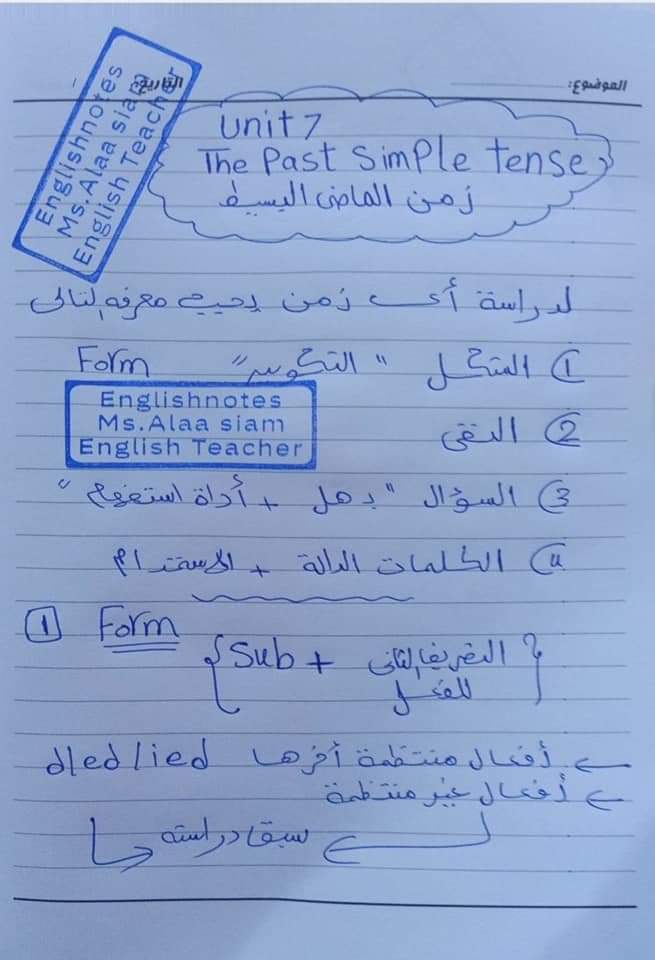 الموضوع:
التاريخ: /
Englishnotes
Ms.Alaa siam
English Teacher
Unit 7
The Past Simple tense
زمن الماضى البسيط
لدراسة أى زمن يجب معرفة التالى
① الشكل "التكوين" Form
Englishnotes
Ms.Alaa siam
English Teacher
② النفى
③ السؤال "بهل + أداة استفهام"
④ الكلمات الدالة + الاستخدام
1 Form
{ Sub + التصريف الثانى للفعل }
← أفعال منتظمة أخرها d/ed/ied
← أفعال غير منتظمة
سبق دراسته